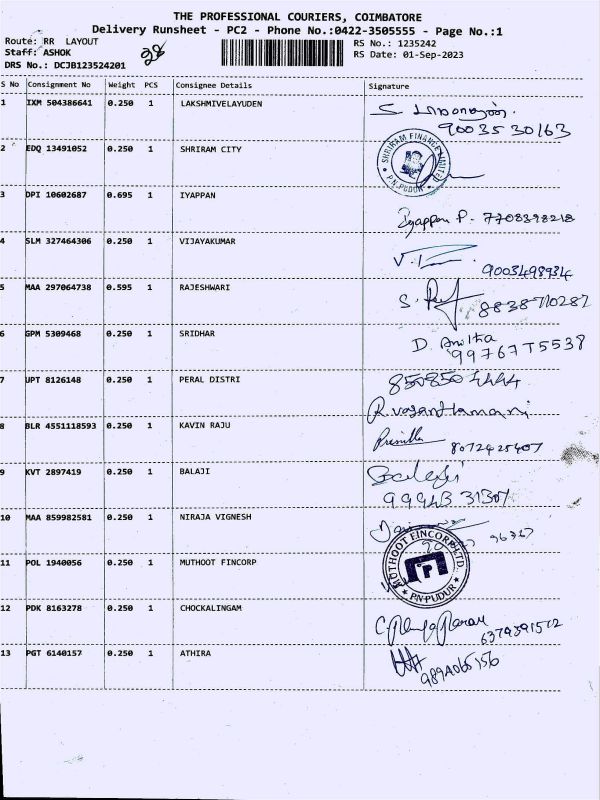 THE PROFESSIONAL COURIERS, COIMBATORE
Delivery Runsheet - PC2 - Phone No.:0422-3505555 - Page No.:1
Route: RR LAYOUT
Staff: ASHOK
DRS No.: DCJB123524201
28
RS No.: 1235242
RS Date: 01-Sep-2023
S No Consignment No Weight PCS Consignee Details Signature
1 IXM 504386641 0.250 1 LAKSHMIVELAYUDEN
9003530163
2 EDQ 13491052 0.250 1 SHRIRAM CITY
SHRIRAM FINANCE LIMITED
P.N.PUDUR
3 DPI 10602687 0.695 1 IYAPPAN
Iyappan P. 7708398218
4 SLM 327464306 0.250 1 VIJAYAKUMAR
9003498934
5 MAA 297064738 0.595 1 RAJESHWARI
8838710287
6 GPM 5309468 0.250 1 SRIDHAR
D. Anitha
9976775538
7 UPT 8126148 0.250 1 PERAL DISTRI
8508504444
R. vasanthamani
8 BLR 4551118593 0.250 1 KAVIN RAJU
8072425407
9 KVT 2897419 0.250 1 BALAJI
Balaji
99943 31307
10 MAA 859982581 0.250 1 NIRAJA VIGNESH
11 POL 1940056 0.250 1 MUTHOOT FINCORP
MUTHOOT FINCORP LTD.
P.N.PUDUR
12 PDK 8163278 0.250 1 CHOCKALINGAM
6379391512
13 PGT 6140157 0.250 1 ATHIRA
9894065156